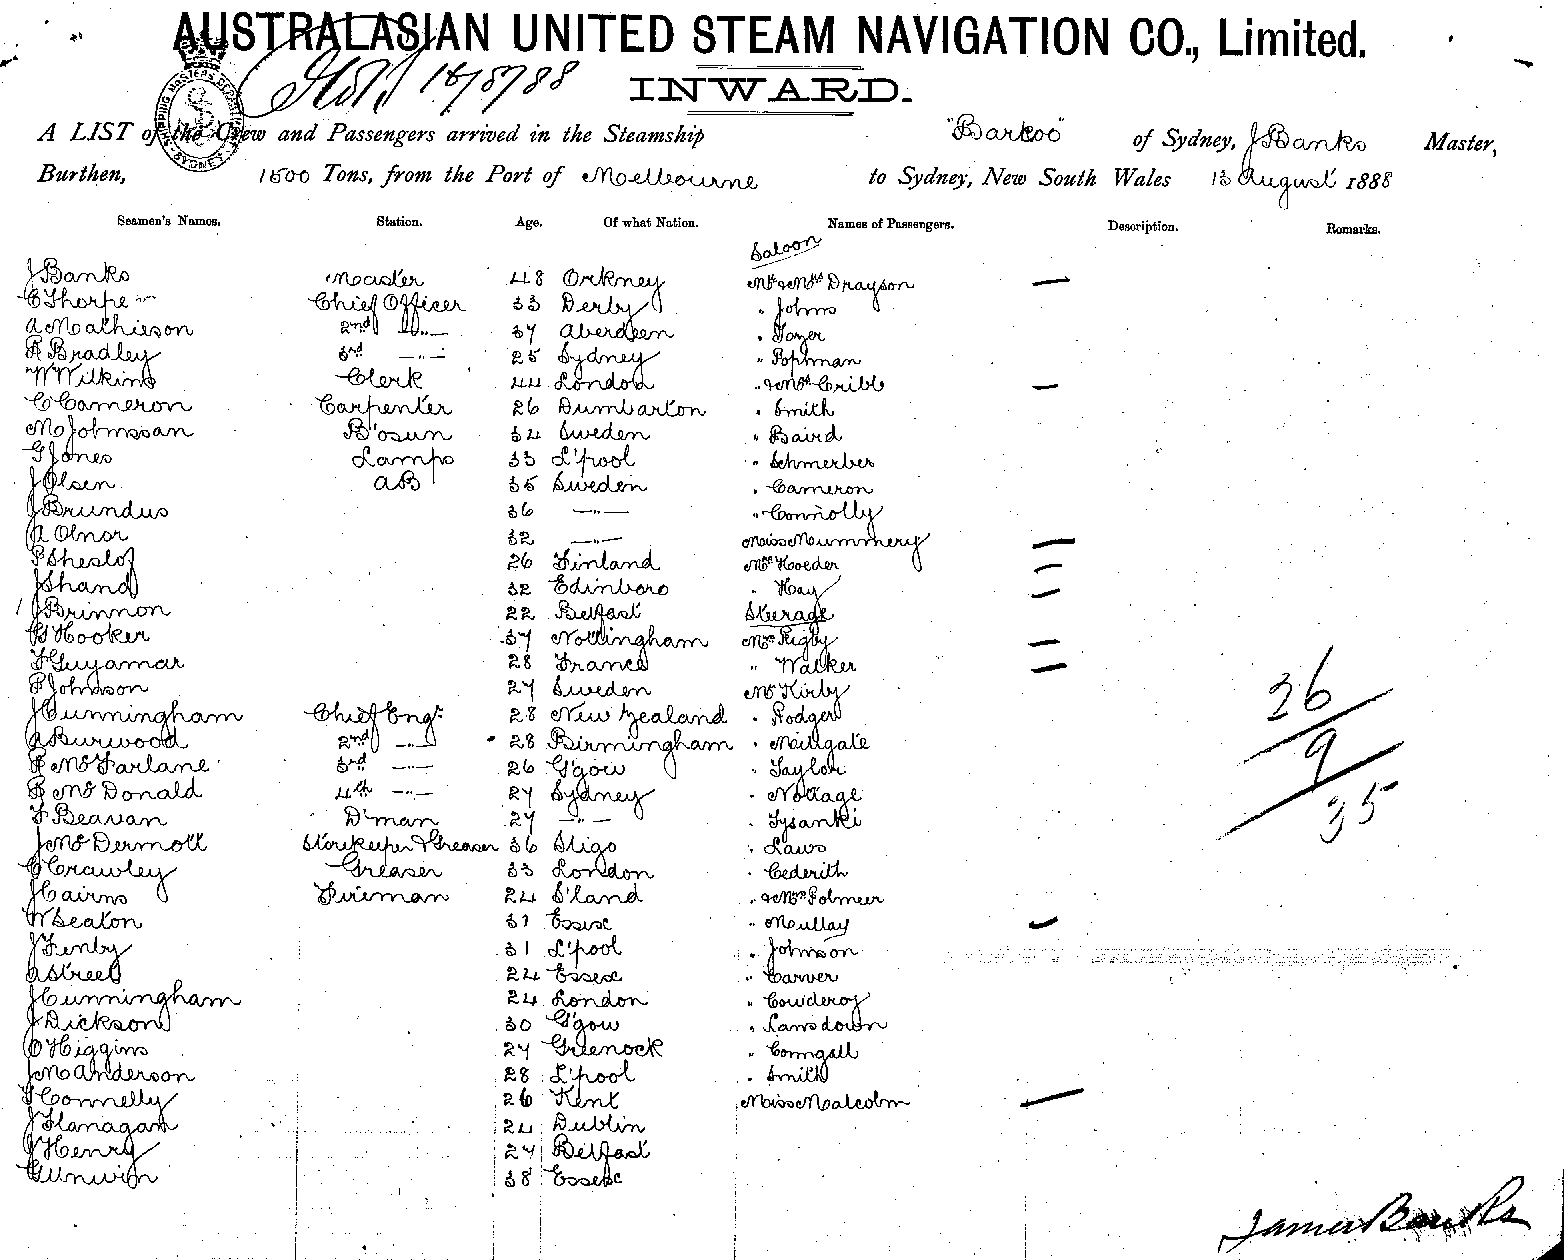 AUSTRALASIAN UNITED STEAM NAVIGATION CO., Limited.
18/8/88
INWARD.
A LIST of the Crew and Passengers arrived in the Steamship "Barkoo" of Sydney, J Banks Master,
Burthen, 1500 Tons, from the Port of Melbourne to Sydney, New South Wales 13 August 1888
Seamen's Names. Station. Age. Of what Nation. Names of Passengers. Description. Remarks.
Saloon
J Banks Master 48 Orkney Mr & Mrs Drayson —
C Thorpe Chief Officer 33 Derby " Johns
A Mathieson 2nd —"— 37 Aberdeen " Tozer
R Bradley 3rd —"— 25 Sydney " Pophman
W Wilkins Clerk 44 London " & Mrs Cribb —
C Cameron Carpenter 26 Dumbarton " Smith
M Johnssan B'osun 34 Sweden " Baird
G Jones Lamps 33 L'pool " Schmerber
J Olsen AB 35 Sweden " Cameron
J Brundus 36 —"— " Connolly
A Olnor 32 —"— Miss Mummery —
P Sheslof 26 Finland Mrs Hoeder —
J Shand 32 Edinboro " Hay —
J Brinnon 22 Belfast Sterage
G Hooker 37 Nottingham Mrs Rigby —
F Guyamar 28 France " Walker —
P Johnson 27 Sweden Mr Kirby
J Cunningham Chief Engr 28 New Zealand " Rodger
A Burwood 2nd —"— 28 Birmingham " Mailgate
R McFarlane 3rd —"— 26 G'gow " Taylor
R McDonald 4th —"— 27 Sydney " Nottage
F Beavan D'man 27 —"— " Tysanki
J McDermott Storekeeper & Greaser 36 Sligo " Laws
C Crawley Greaser 33 London " Cederith
J Cairns Fireman 24 S'land " & Mrs Polmeer
W Seaton 37 Essex " Mullay —
J Fenby 31 L'pool " Johnson
A Street 24 Essex " Carver
J Cunningham 24 London " Cowderoy
J Dickson 30 G'gow " Lansdown
O Higgins 27 Greenock " Comgall
J M Anderson 28 L'pool " Smith
T Connelly 26 Kent Miss Malcolm —
J Flanagan 24 Dublin
J Henry 27 Belfast
G Unwin 38 Essex
26
9
35
James Banks